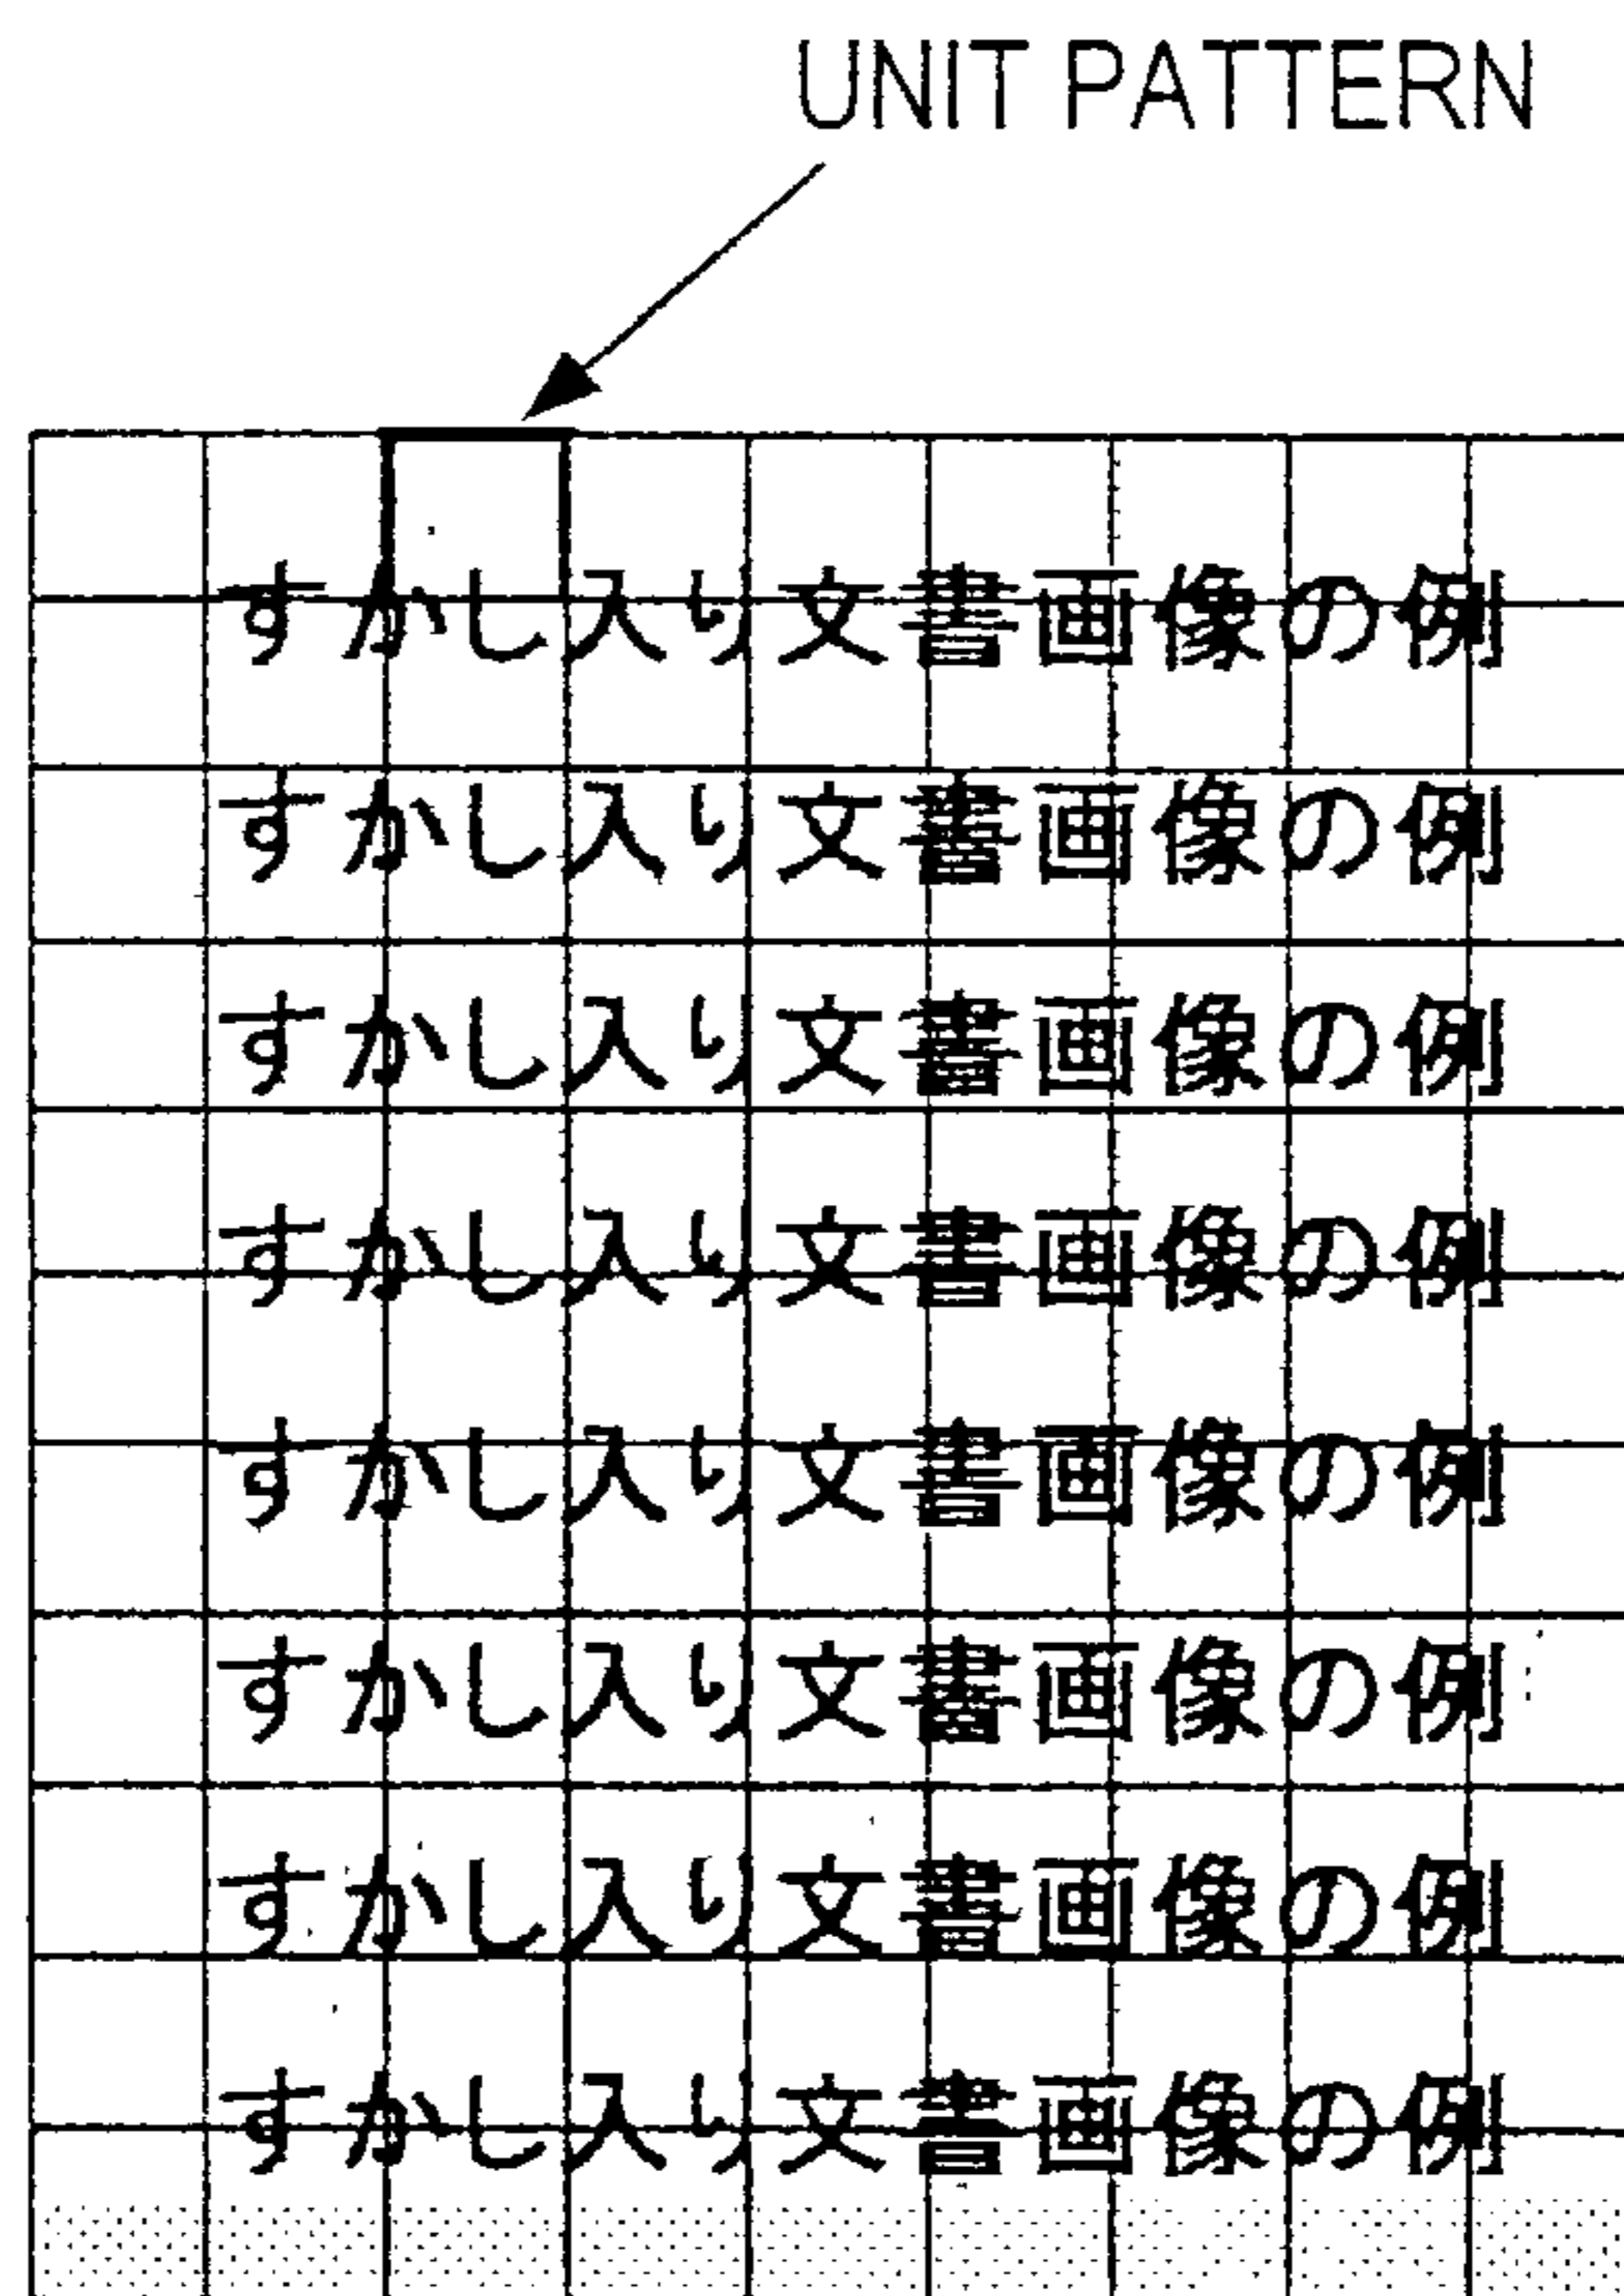 UNIT PATTERN
すかし入り文書画像の例
すかし入り文書画像の例
すかし入り文書画像の例
すかし入り文書画像の例
すかし入り文書画像の例
すかし入り文書画像の例
すかし入り文書画像の例
すかし入り文書画像の例